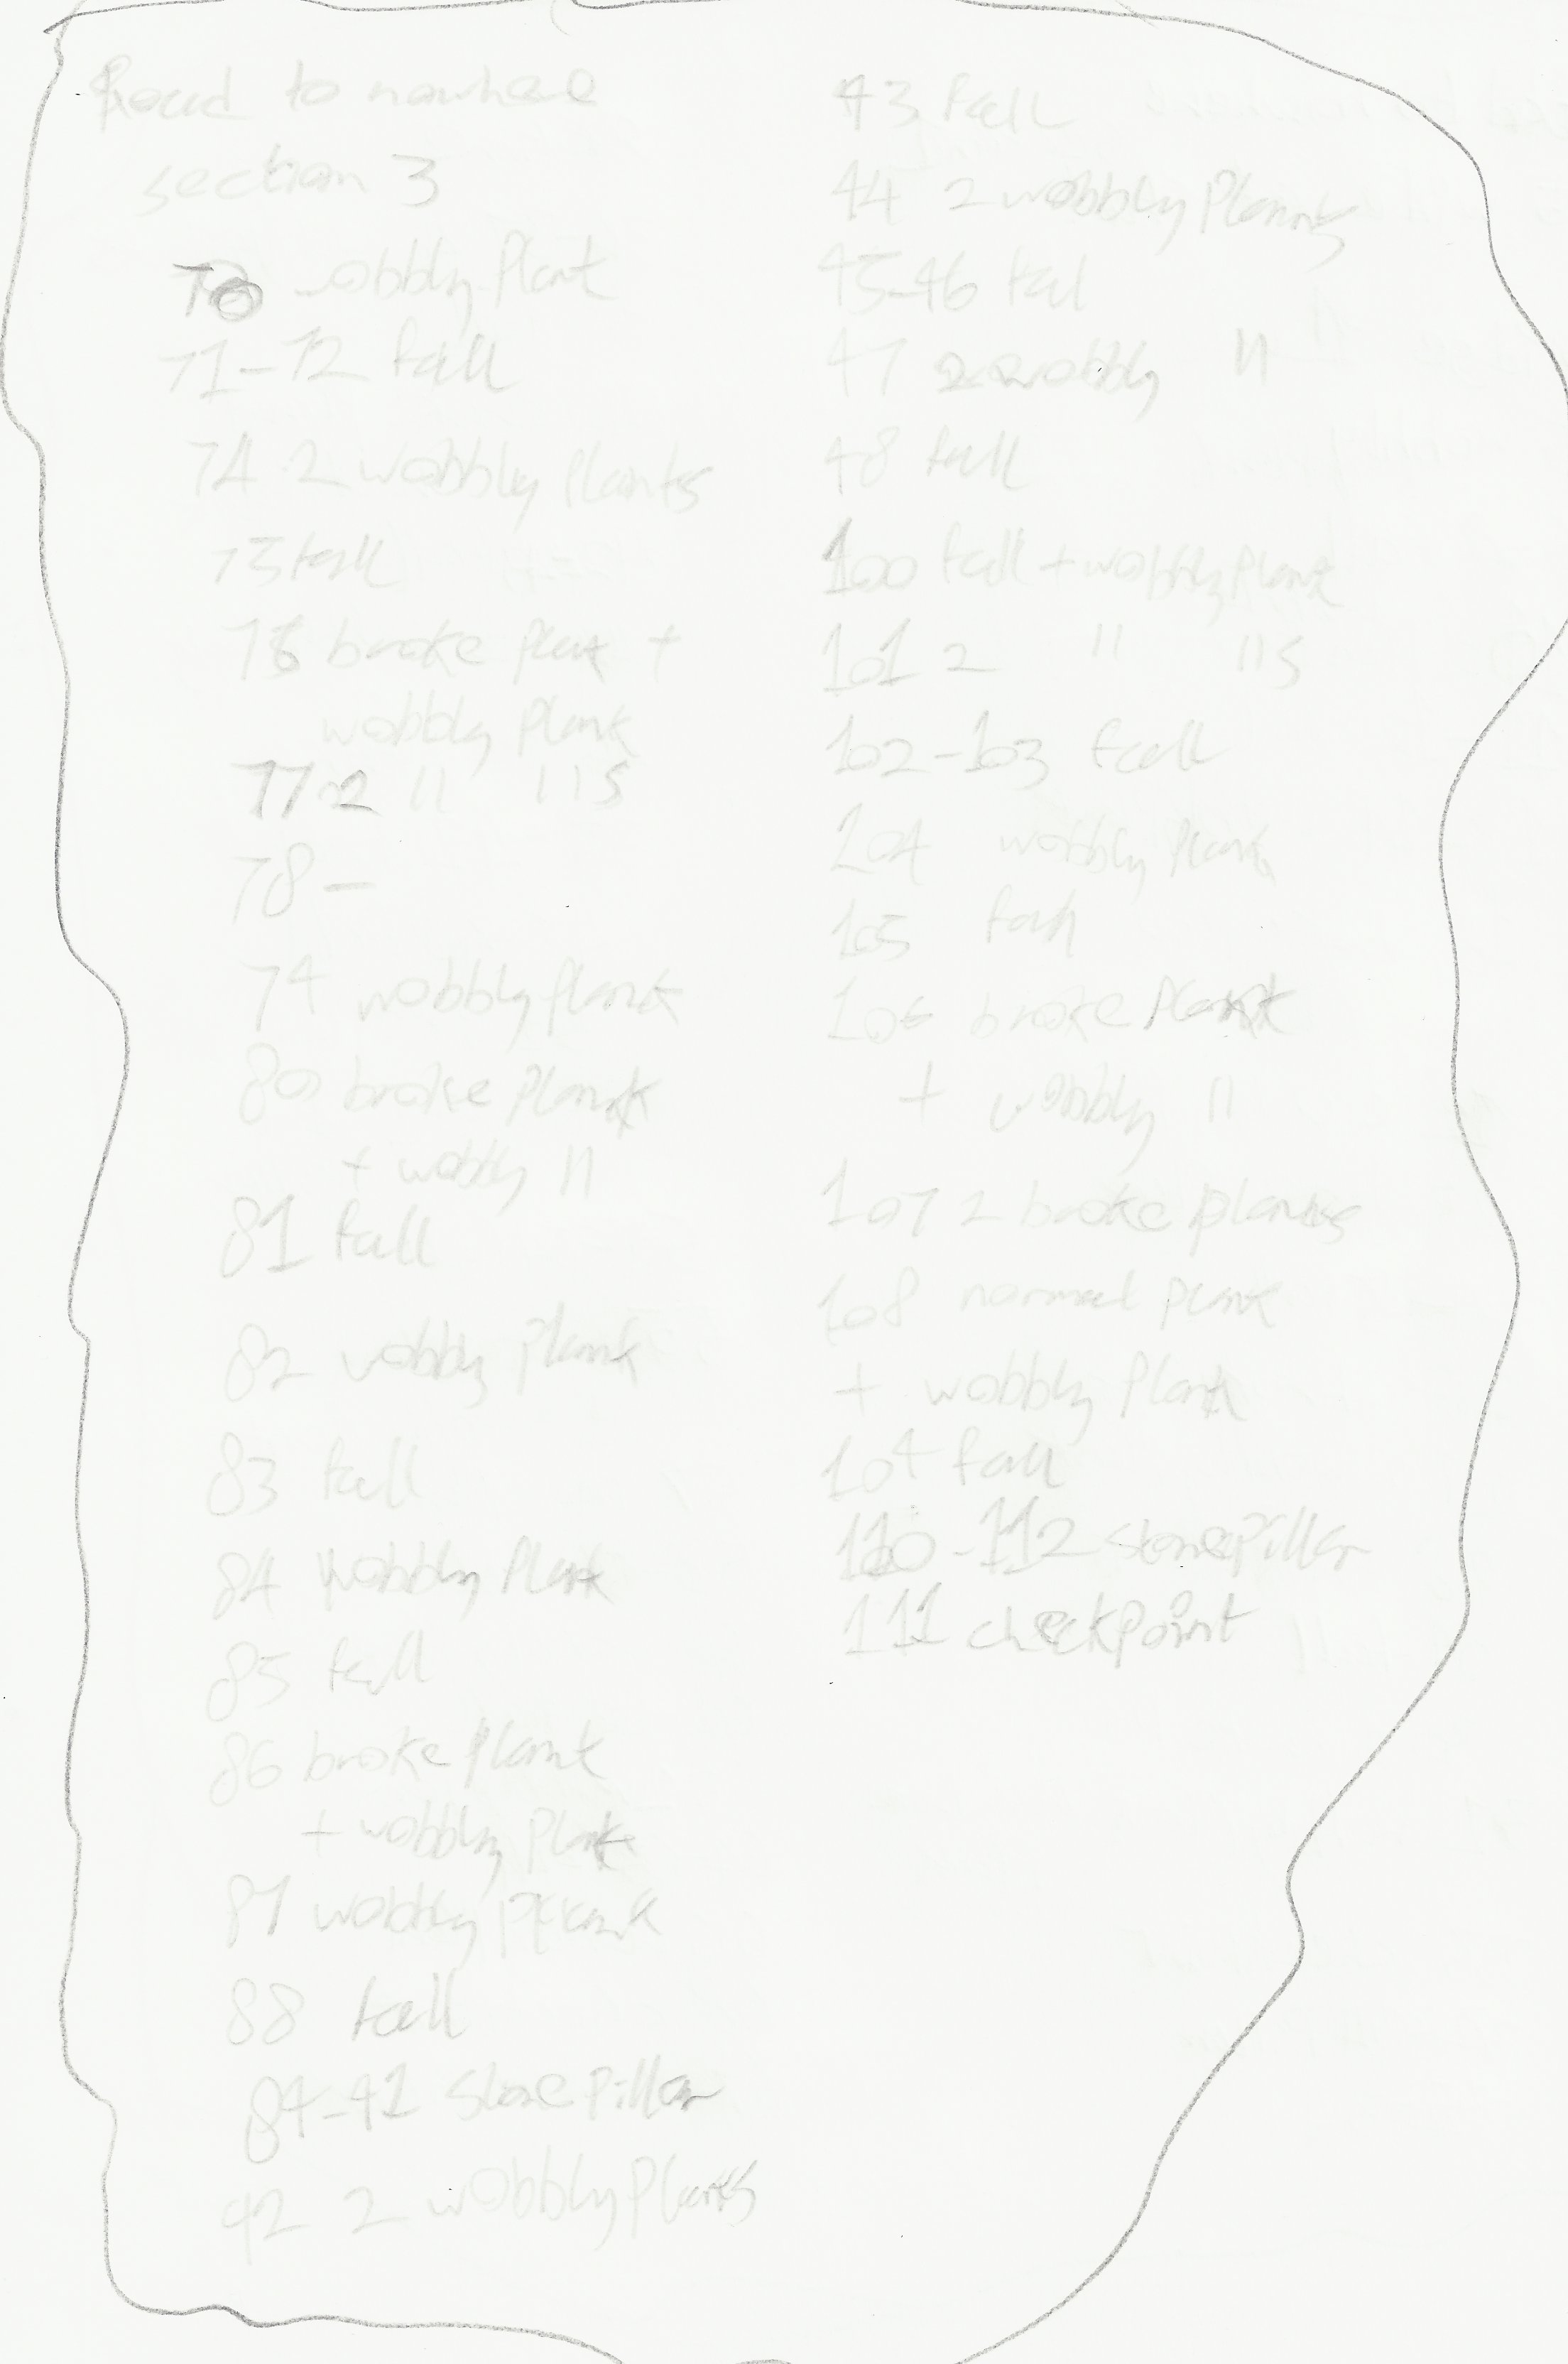 Road to nowhere
section 3
70 wobbly plank
71-72 fall
74 2 wobbly planks
75 fall
76 broke plank +
wobbly plank
77 2 " "s
78 -
79 wobbly plank
80 broke plank
+ wobbly "
81 fall
82 wobbly plank
83 fall
84 wobbly plank
85 fall
86 broke plank
+ wobbly plank
87 wobbly plank
88 fall
89-91 stone pillar
92 2 wobbly planks
93 fall
94 2 wobbly planks
95-96 fall
97 2 wobbly "
98 fall
100 fall + wobbly plank
101 2 " "s
102-103 fall
104 wobbly plank
105 fall
106 broke plank
+ wobbly "
107 2 broke planks
108 normal plank
+ wobbly plank
109 fall
110-112 stone pillar
111 checkpoint